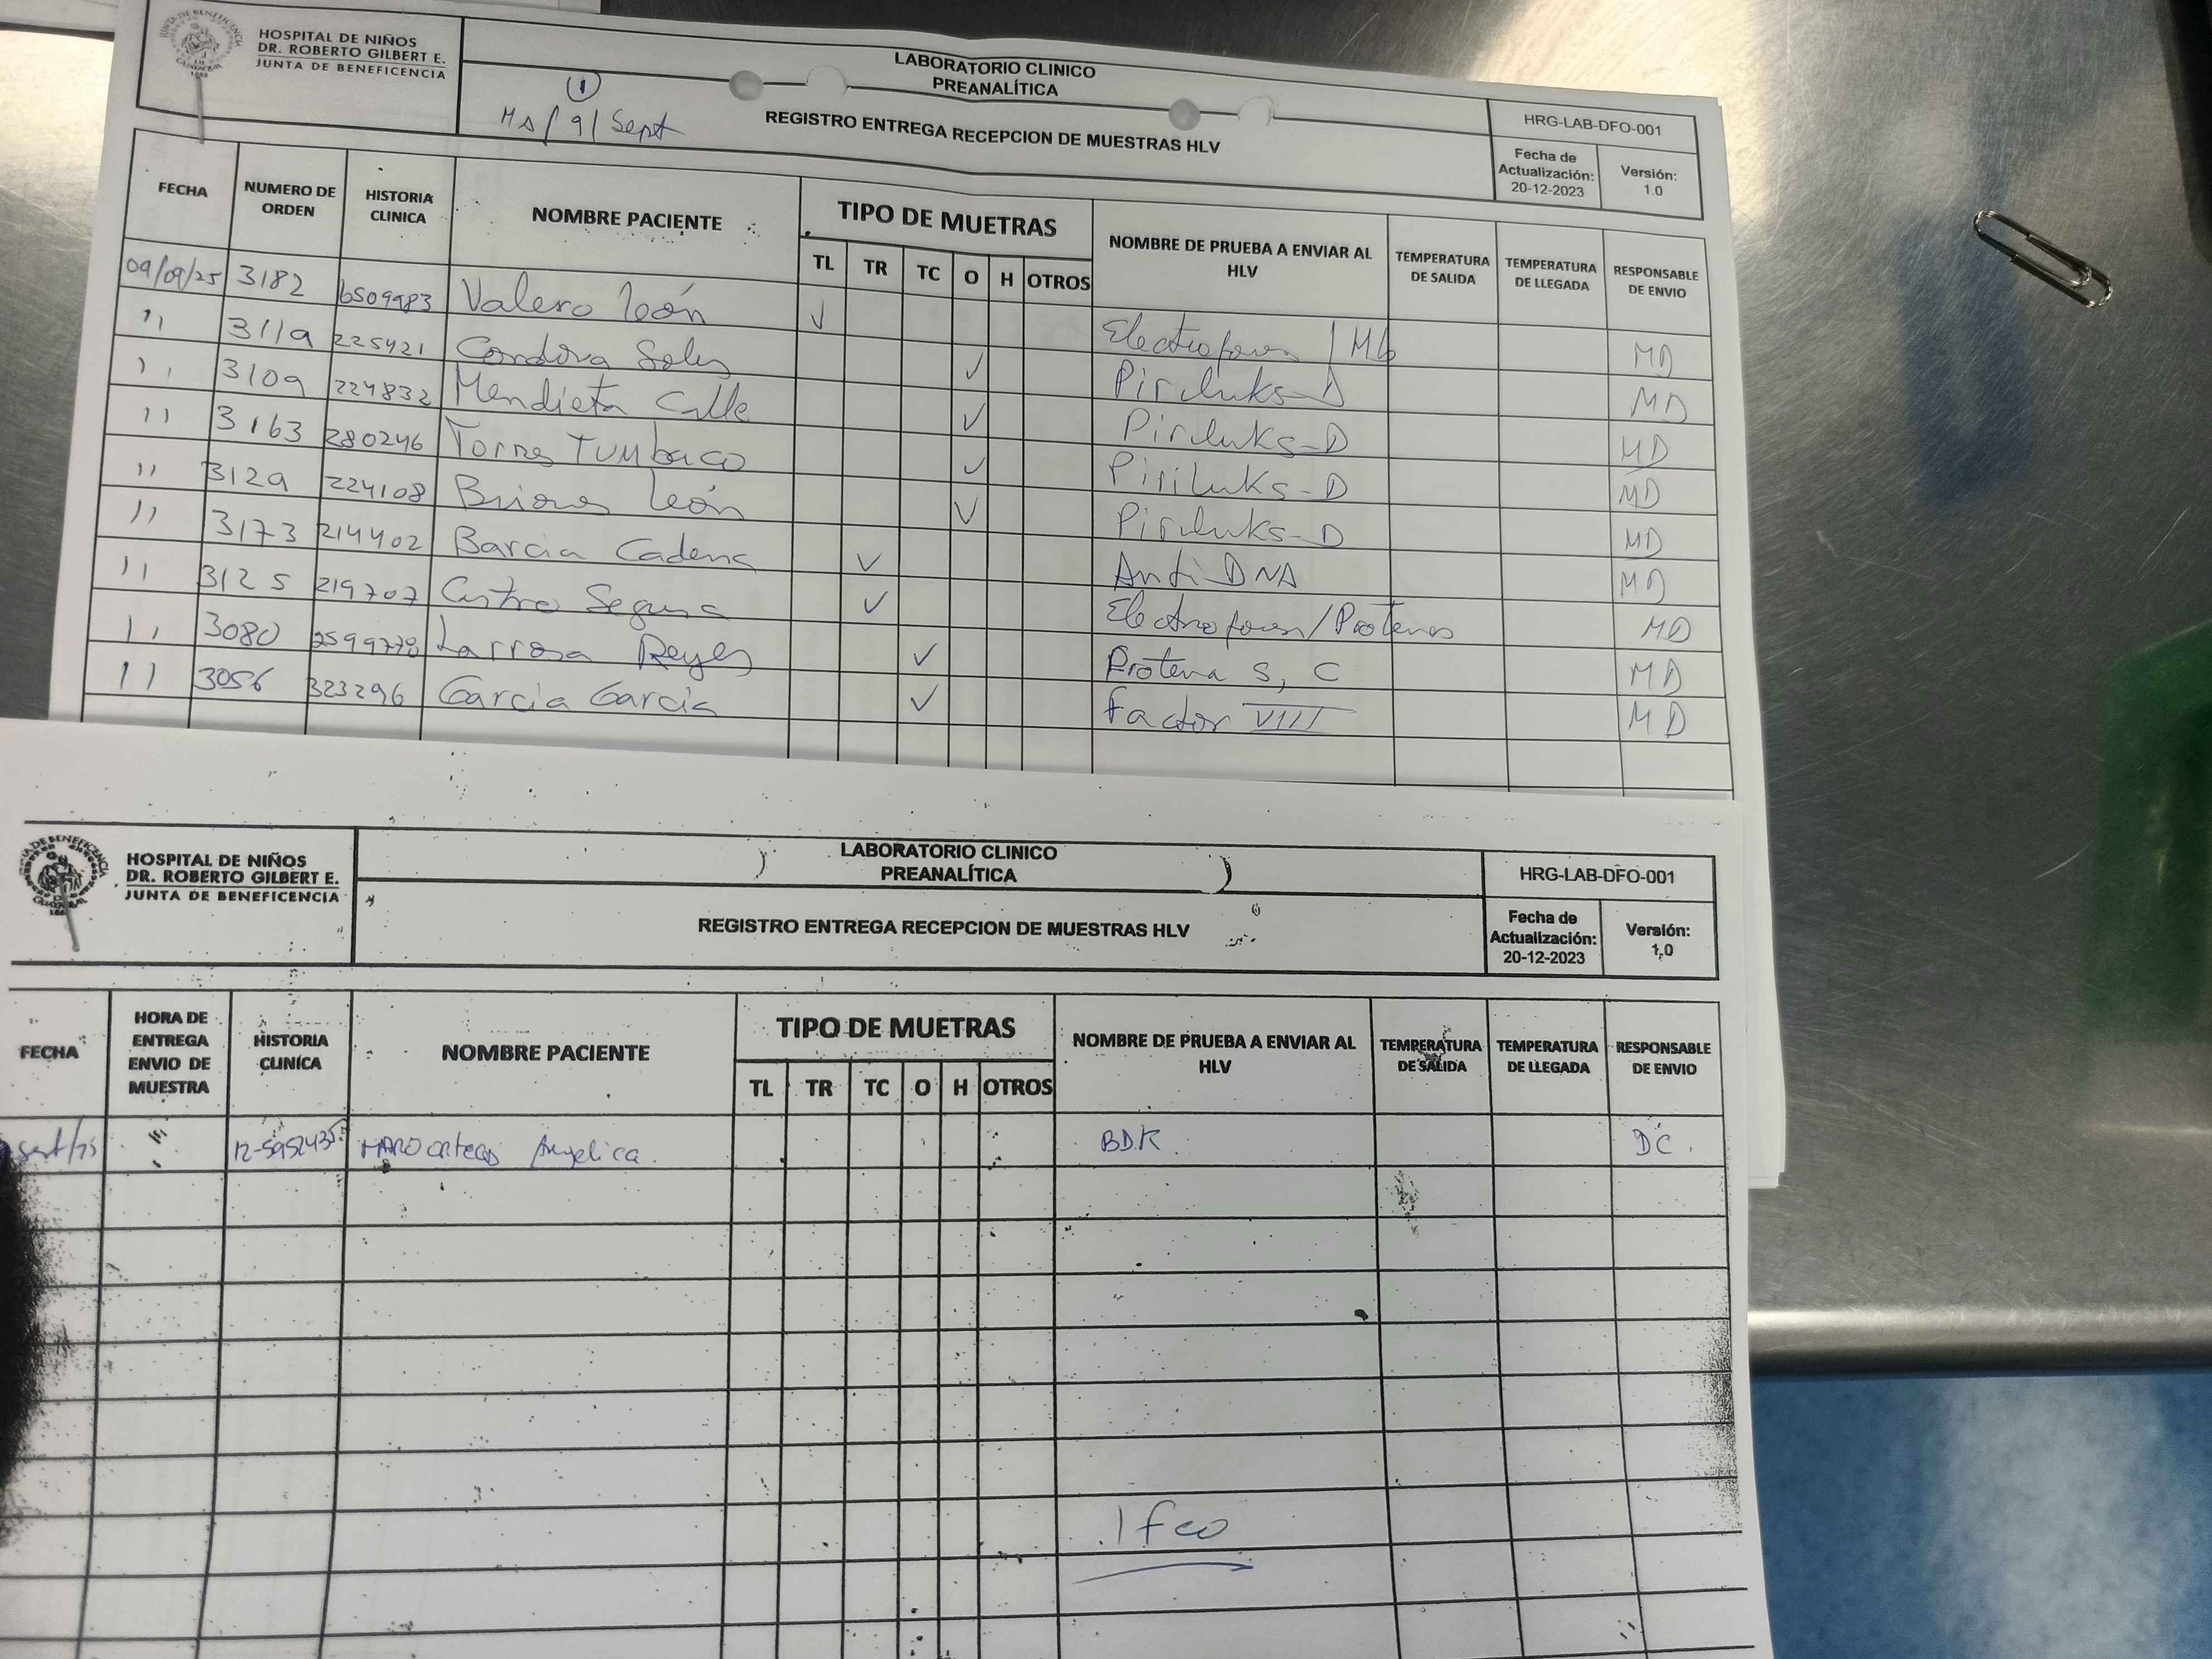 HOSPITAL DE NIÑOS
DR. ROBERTO GILBERT E.
JUNTA DE BENEFICENCIA
LABORATORIO CLINICO
PREANALÍTICA
1
Ma/9/Sept
REGISTRO ENTREGA RECEPCION DE MUESTRAS HLV
HRG-LAB-DFO-001
Fecha de Actualización: 20-12-2023
Versión: 1.0
FECHA NUMERO DE ORDEN HISTORIA CLINICA NOMBRE PACIENTE TIPO DE MUETRAS NOMBRE DE PRUEBA A ENVIAR AL HLV TEMPERATURA DE SALIDA TEMPERATURA DE LLEGADA RESPONSABLE DE ENVIO
TL TR TC O H OTROS
09/09/25 3182 6509983 Valero León ✓ MD
11 3119 225421 Cordova ✓ MD
11 3109 224832 Mendieta Calle ✓ MD
11 3163 280246 Torres Tumbaco ✓ Piriluks-D MD
11 3129 224108 Briones León ✓ MD
11 3173 214402 Barcia Cadena ✓ Anti DNA MD
11 3125 219707 Castro Segura ✓ MD
11 3080 Larrosa Reyes ✓ Proteina S, C MD
11 3056 323296 Garcia Garcia ✓ Factor VIII MD
HOSPITAL DE NIÑOS
DR. ROBERTO GILBERT E.
JUNTA DE BENEFICENCIA
LABORATORIO CLINICO
PREANALÍTICA
REGISTRO ENTREGA RECEPCION DE MUESTRAS HLV
HRG-LAB-DFO-001
Fecha de Actualización: 20-12-2023
Versión: 1.0
FECHA HORA DE ENTREGA ENVIO DE MUESTRA HISTORIA CLINÍCA NOMBRE PACIENTE TIPO DE MUETRAS NOMBRE DE PRUEBA A ENVIAR AL HLV TEMPERATURA DE SALIDA TEMPERATURA DE LLEGADA RESPONSABLE DE ENVIO
TL TR TC O H OTROS
Angelica BDK DC
1 fco